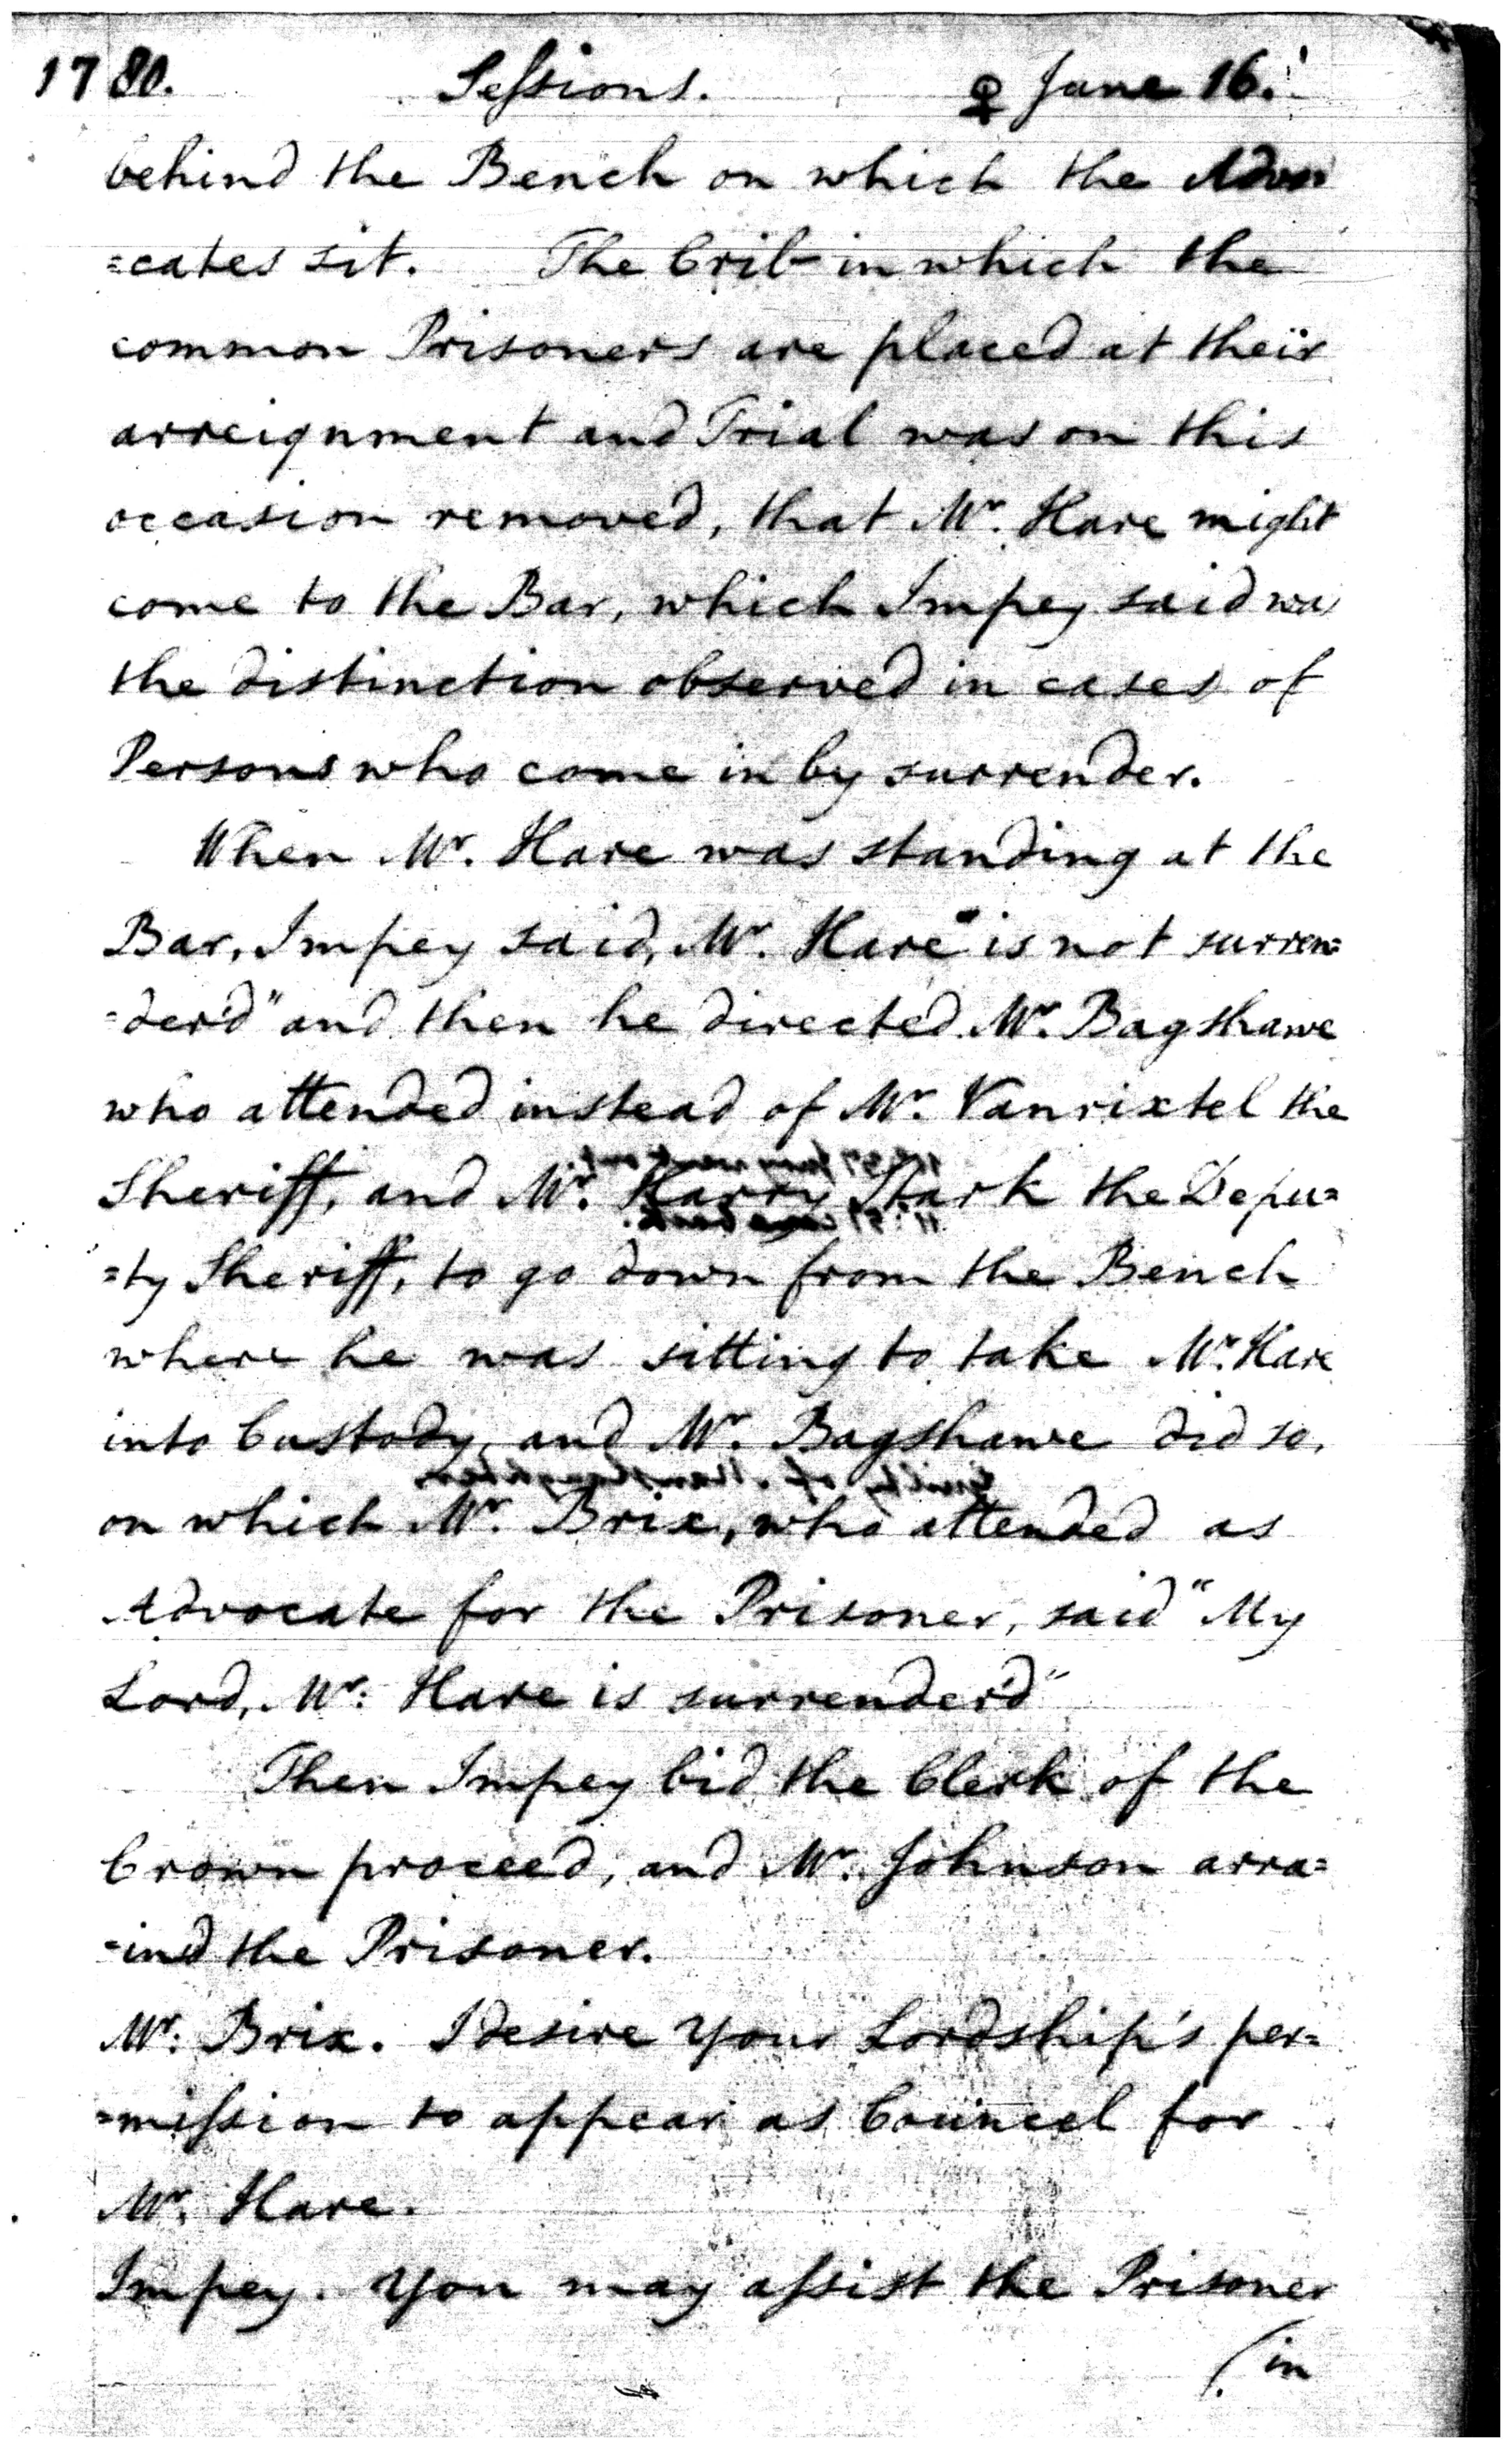 1780. Seſsions. ♀ June 16.
behind the Bench on which the Advo
=cates sit. The Crib in which the
common Prisoners are placed at their
arreignment and Trial was on this
occasion removed, that Mr. Hare might
come to the Bar, which Impey said was
the distinction observed in cases of
Persons who come in by surrender.
When Mr. Hare was standing at the
Bar, Impey said, Mr. Hare "is not surren=
=der'd" and then he directed Mr. Bagshawe
who attended instead of Mr. Vanrixtel the
Sheriff, and Mr. Harry Stark the Depu=
=ty Sheriff, to go down from the Bench
where he was sitting to take Mr. Hare
into Custody, and Mr. Bagshawe did so,
on which Mr. Brix, who attended as
Advocate for the Prisoner, said "My
Lord, Mr. Hare is surrender'd"
Then Impey bid the Clerk of the
Crown proceed, and Mr. Johnson arra=
=in'd the Prisoner.
Mr. Brix. I desire your Lordship's per=
=miſsion to appear as Councel for
Mr. Hare.
Impey. You may aſsist the Prisoner
(in